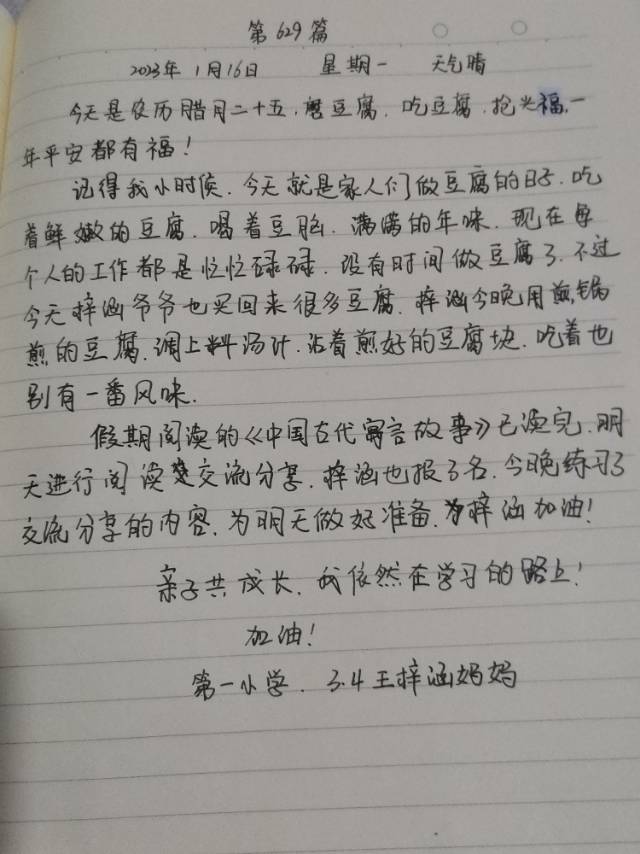 第629篇
2023年 1月16日 星期一 天气晴
今天是农历腊月二十五,磨豆腐,吃豆腐,抢头福,一
年平安都有福!
记得我小时候,今天就是家人们做豆腐的日子,吃
着鲜嫩的豆腐,喝着豆脑,满满的年味,现在每
个人的工作都是忙忙碌碌,没有时间做豆腐了,不过
今天梓涵爷爷也买回来很多豆腐,梓涵今晚用煎锅
煎的豆腐,调上料汤汁,沾着煎好的豆腐块,吃着也
别有一番风味.
假期阅读的《中国古代寓言故事》已读完,明
天进行阅读交流分享,梓涵也报了名,今晚练习了
交流分享的内容,为明天做好准备,为梓涵加油!
亲子共成长,我依然在学习的路上!
加油!
第一小学. 3.4王梓涵妈妈